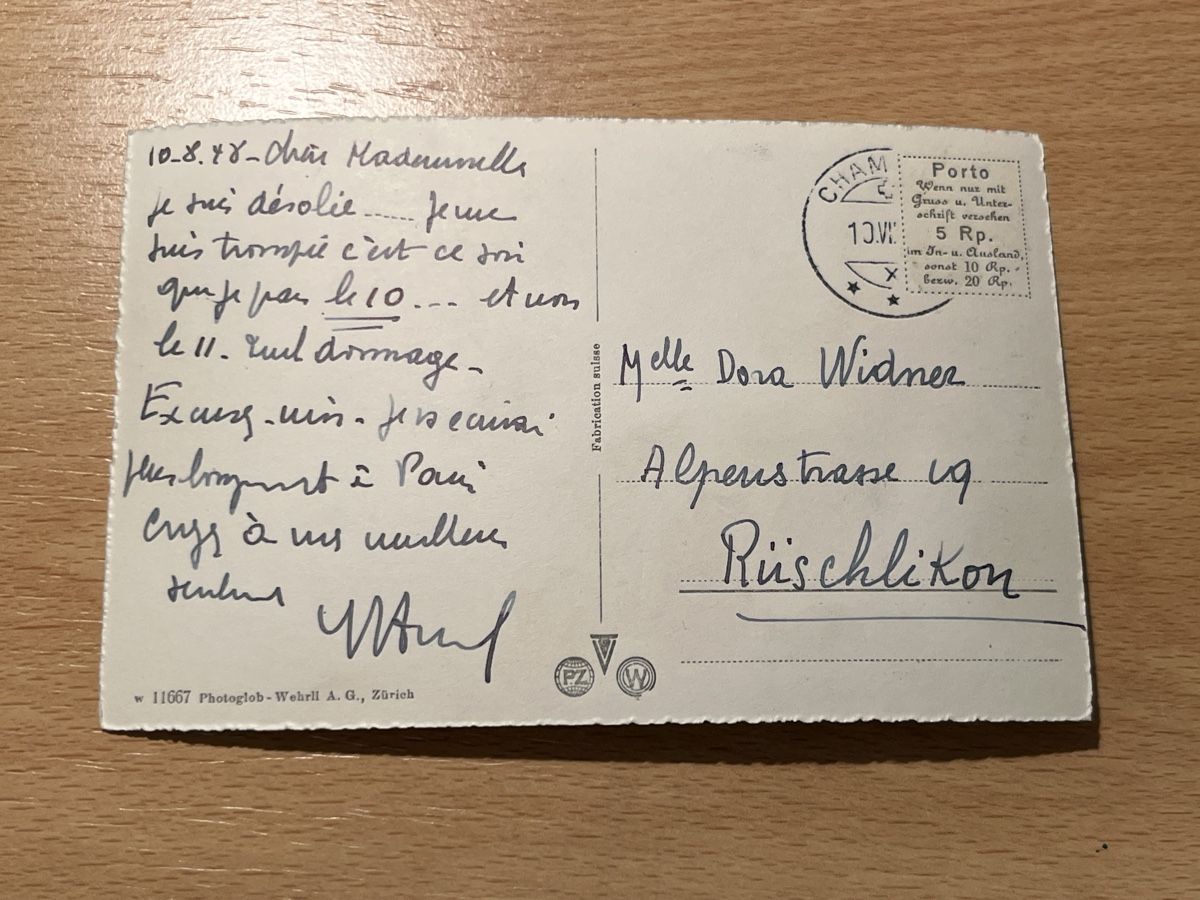 10-8.48 - Chère Mademoiselle
je suis désolée ..... je me
suis trompée c'est ce soir
que je pars le 10 ... et non
le 11. Quel dommage -
Excusez-moi - je
plus longuement à Paris
Croyez à mes meilleurs
CHAM
10.VI
Porto
Wenn nur mit
Gruss u. Unter-
schrift versehen
5 Rp.
im In- u. Ausland,
sonst 10 Rp.,
bezw. 20 Rp.
Melle Dora Widmer
Alpenstrasse 19
Rüschlikon
Fabrication suisse
PZ
W
w 11667 Photoglob-Wehrli A. G., Zürich